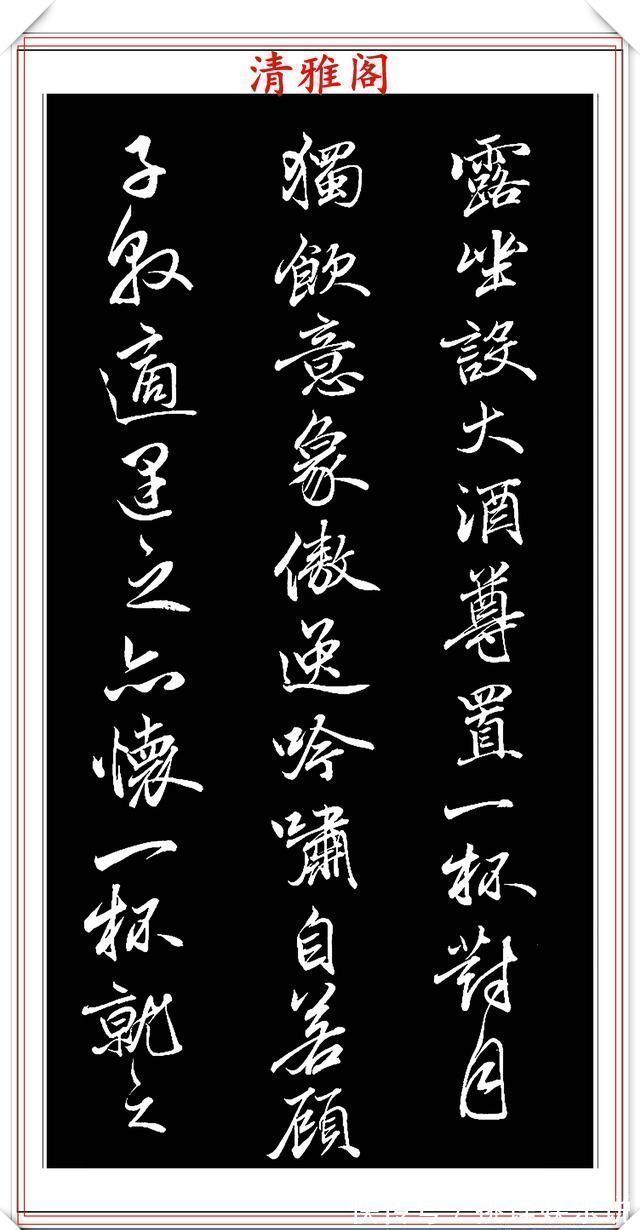 清雅阁
露坐設大酒尊置一杯對月
獨飲意象傲逸吟嘯自若顧
子敦適遇之亦懷一杯就之